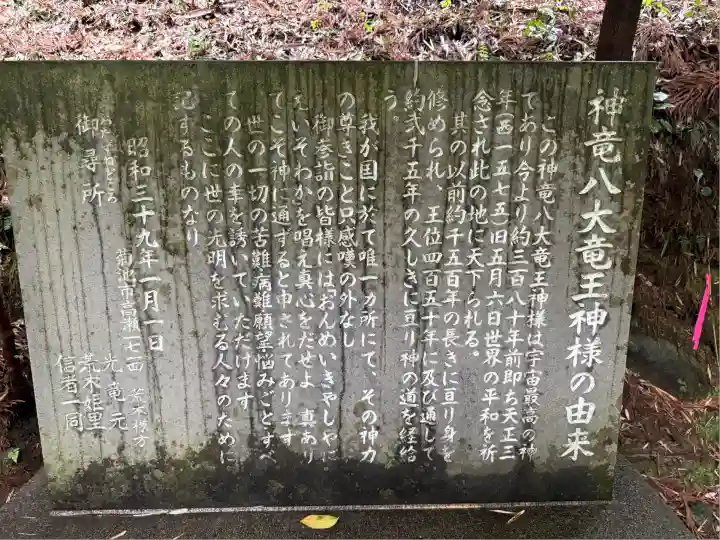 神竜八大竜王神様の由来
この神竜八大竜王神様は宇宙最高の神
であり今より約三百八十年前即ち天正三
年(西一五七五)旧五月六日世界の平和を祈
念され此の地に天下られる。
其の以前約千五百年の長きに亘り身を
修められ、王位四百五十年に及び通して
約弐千五年の久しきに亘り神の道を経給
う。
我が国に於て唯一カ所にて、その神力
の尊きこと只感嘆の外なし
御参詣の皆様には「おんめいきやしやに
えいそわか」を唱え真心をだせよ 真あり
てこそ神に通ずると申されてあります
世の一切の苦難病難願望悩みごとすべ
ての人の事を誘いていただけます
ここに世の光明を求むる人々のために
記するものなり
昭和三十九年一月一日
御尋所
菊池市高瀬一七一四 荒木
光竜元
荒木姫里
信者一同